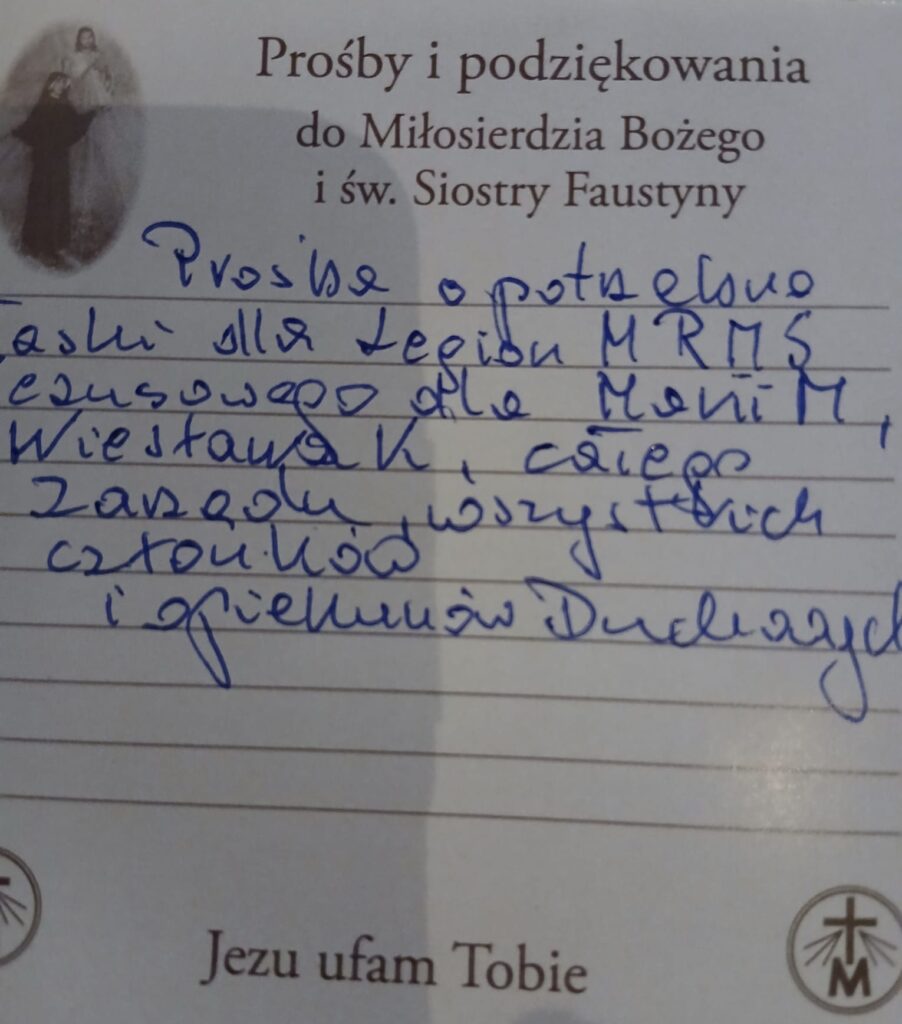 Prośby i podziękowania
do Miłosierdzia Bożego
i św. Siostry Faustyny
Prośba o potrzebne
Łaski dla Legionu MRMŚ
ezusowego dla Marii M,
Wiesława K, całego
Zarządu, wszystkich
członków
i opiekunów Duchowych
Jezu ufam Tobie
M